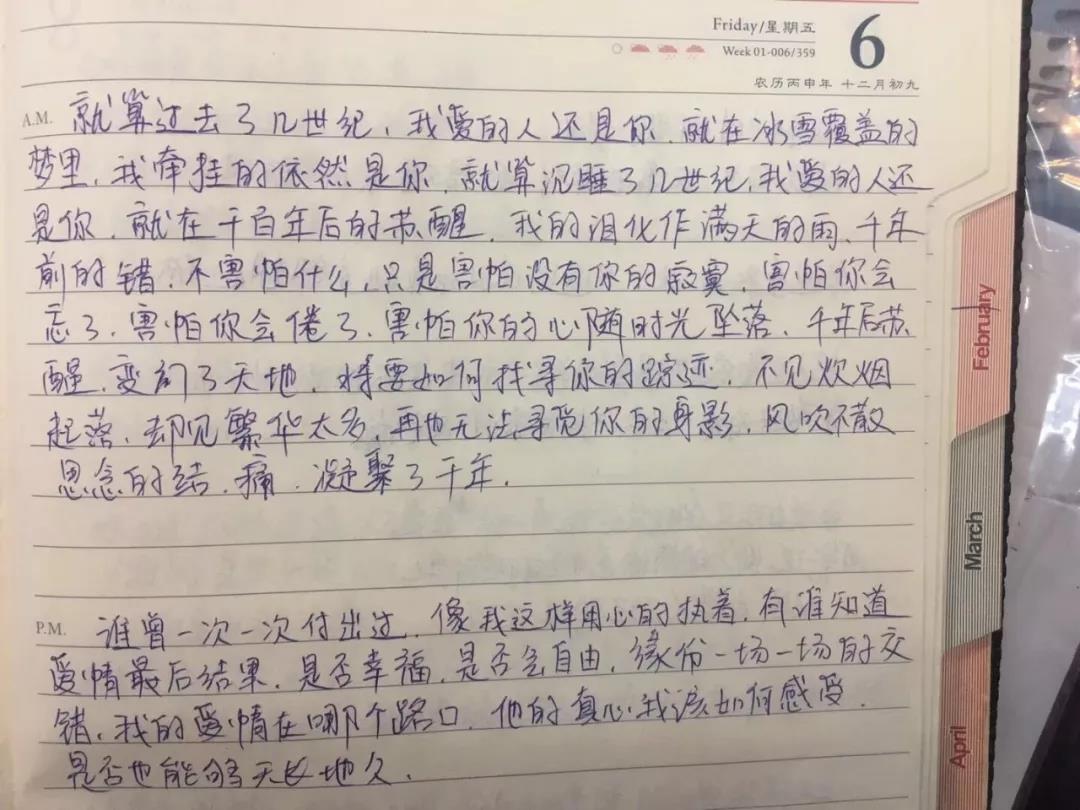 Friday/星期五
Week 01-006/359
6
农历丙申年 十二月初九
A.M. 就算过去了几世纪,我爱的人还是你.就在冰雪覆盖的
梦里,我牵挂的依然是你,就算沉睡了几世纪,我爱的人还
是你.就在千百年后的苏醒,我的泪化作满天的雨、千年
前的错.不害怕什么,只是害怕没有你的寂寞,害怕你会
忘了.害怕你会倦了.害怕你的心随时光坠落.千年后苏
醒.变初了天地.将要如何找寻你的踪迹.不见炊烟
起落,却见繁华太多,再也无法寻觅你的身影,风吹不散
思念的结.痛.凝聚了千年.
P.M. 谁曾一次一次付出过.像我这样用心的执着,有谁知道
爱情最后结果,是否幸福,是否会自由,缘份一场一场的交
错,我的爱情在哪个路口.他的真心我该如何感受.
是否也能够天长地久.
February
March
April